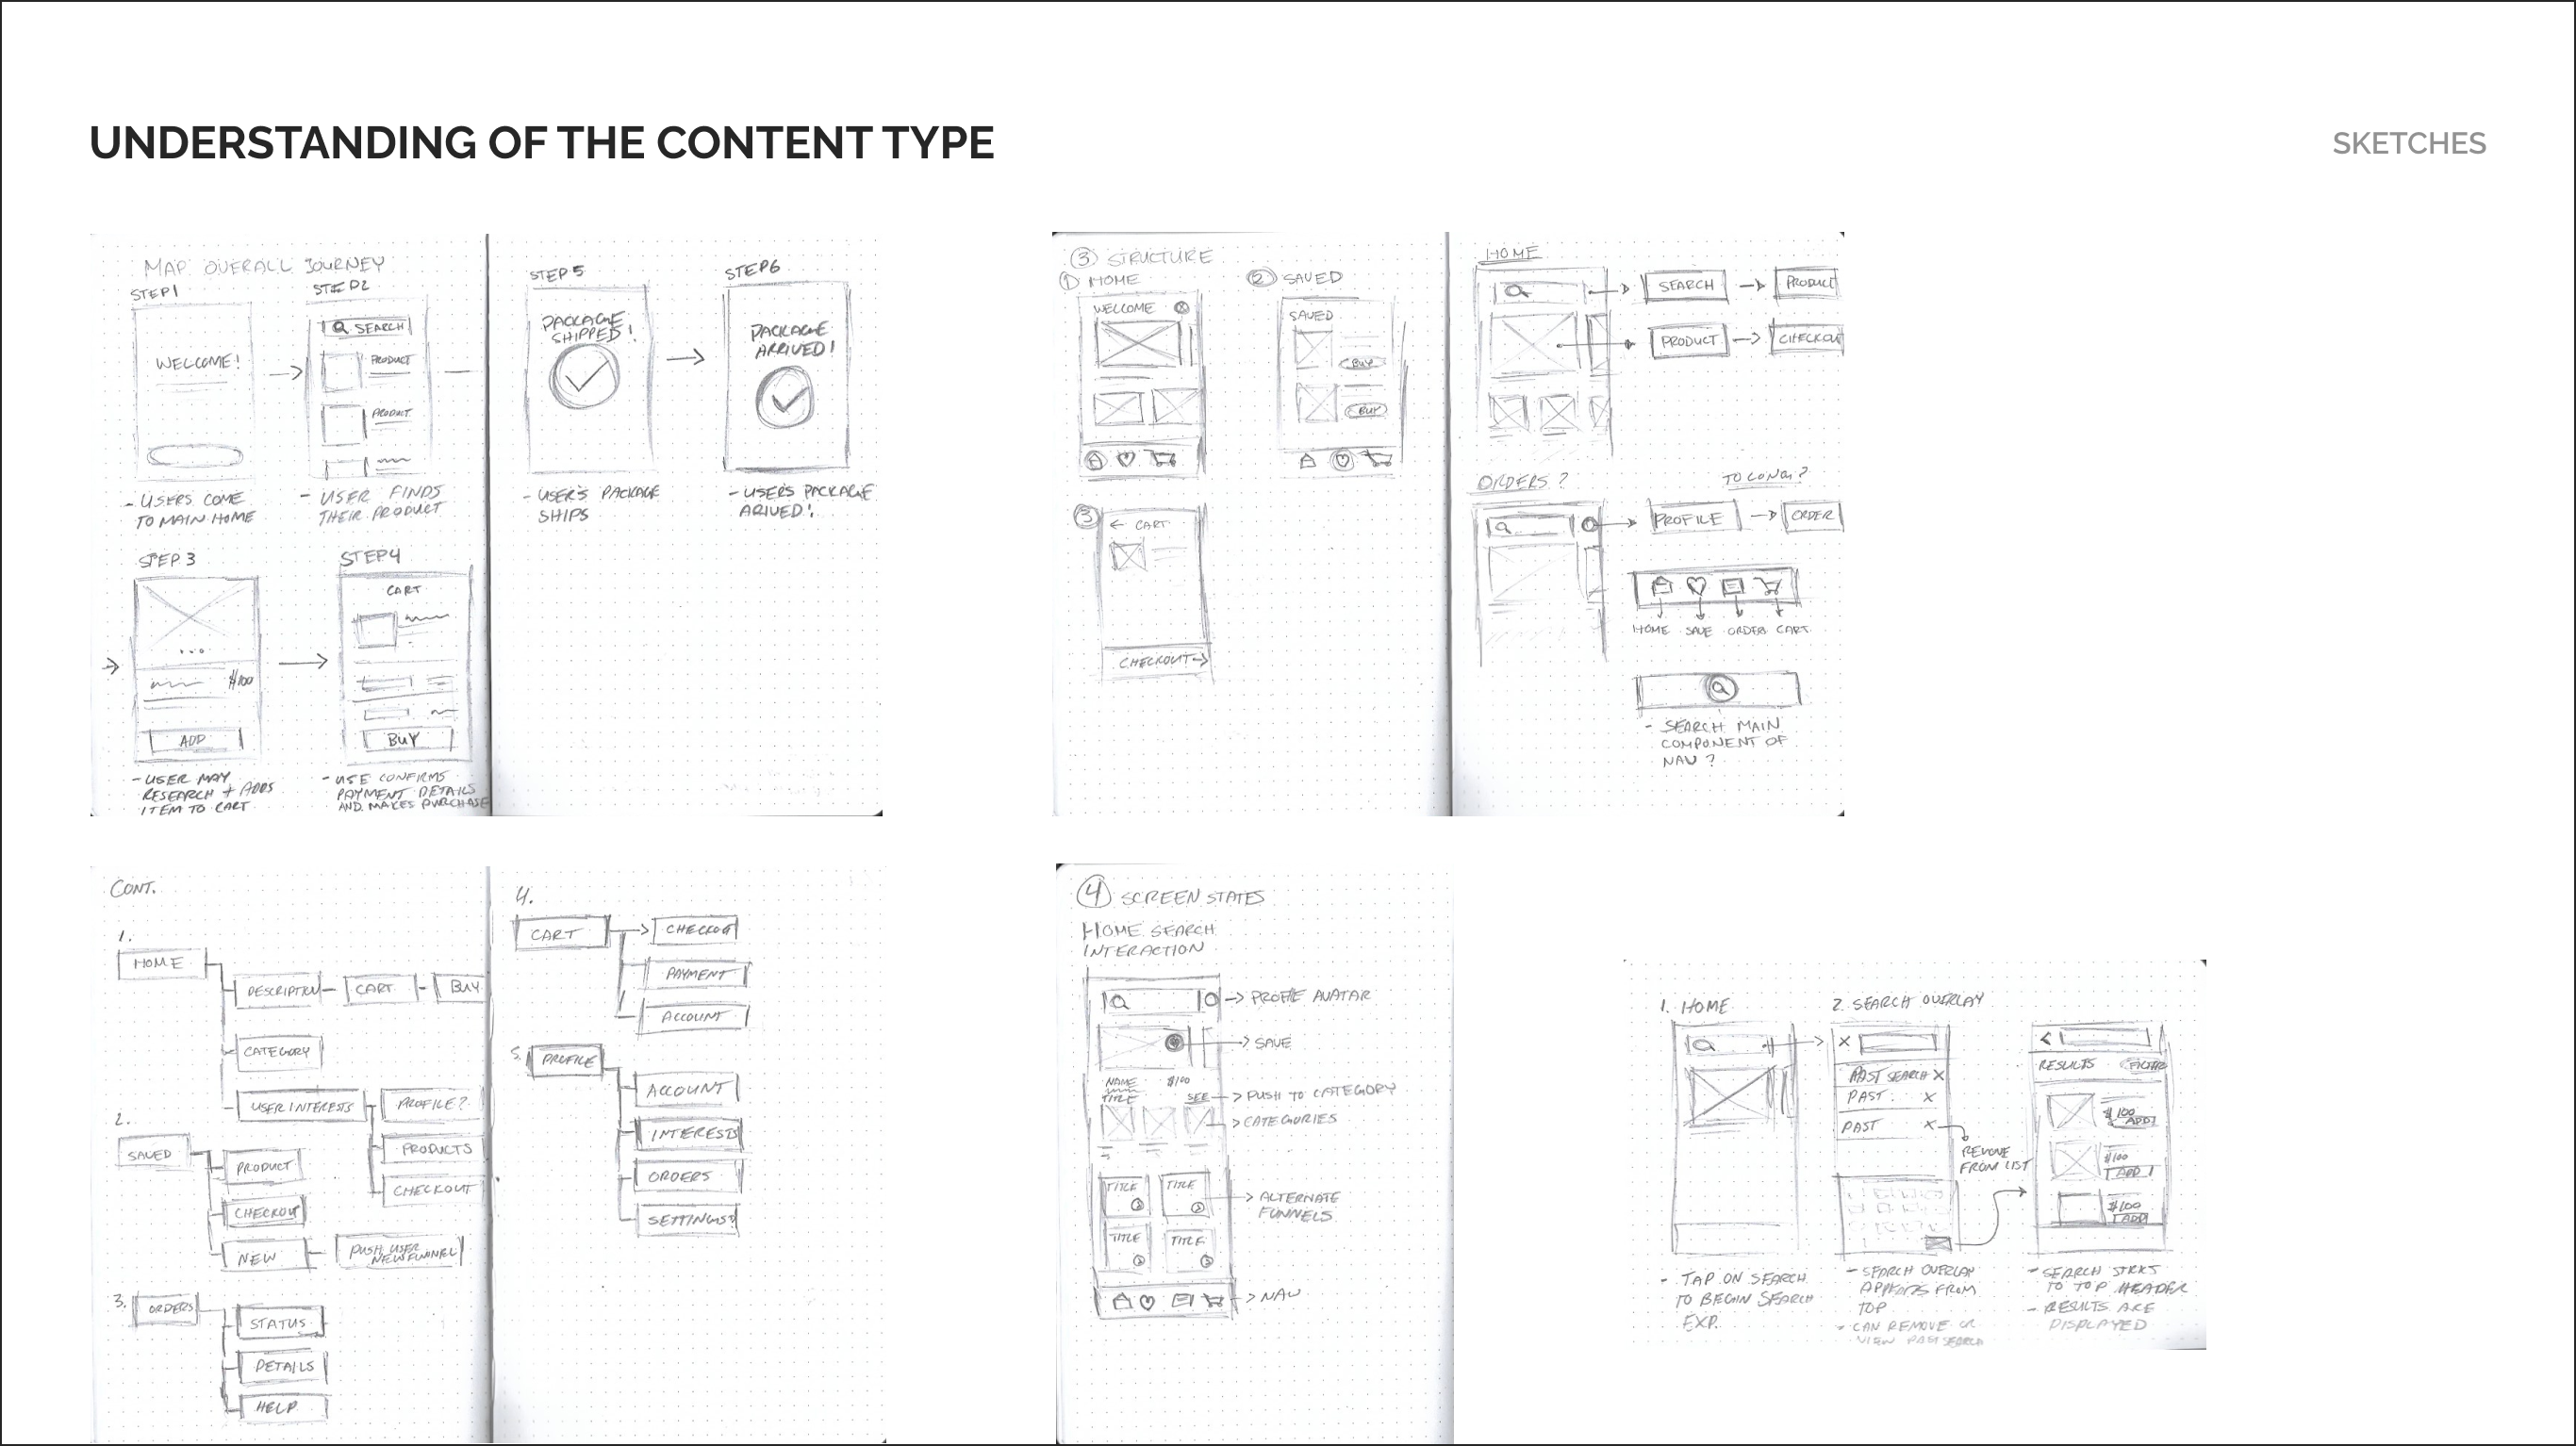 UNDERSTANDING OF THE CONTENT TYPE
SKETCHES
MAP OVERALL JOURNEY
STEP 1
WELCOME!
- USERS COME
TO MAIN HOME
STEP 2
SEARCH
PRODUCT
PRODUCT
- USER FINDS
THEIR PRODUCT
STEP 3
$100
ADD
- USER MAY
RESEARCH + ADDS
ITEM TO CART
STEP 4
CART
BUY
- USE CONFIRMS
PAYMENT DETAILS
AND MAKES PURCHASE
STEP 5
PACKAGE
SHIPPED!
- USER'S PACKAGE
SHIPS
STEP 6
PACKAGE
ARRIVED!
- USER'S PACKAGE
ARIVED!
③ STRUCTURE
① HOME
WELCOME
② SAVED
SAVED
BUY
BUY
③
← CART
CHECKOUT →
HOME
SEARCH
PRODUCT
PRODUCT
CHECKOUT
ORDERS?
TO LONG?
PROFILE
ORDER
HOME SAVE ORDERS CART
- SEARCH MAIN
COMPONENT OF
NAV?
CONT.
1.
HOME
DESCRIPTION
CART
BUY
CATEGORY
USER INTERESTS
PROFILE?
PRODUCTS
CHECKOUT
2.
SAVED
PRODUCT
CHECKOUT
NEW
PUSH USER
NEW FUNNEL
3.
ORDERS
STATUS
DETAILS
HELP
4.
CART
CHECKOUT
PAYMENT
ACCOUNT
5.
PROFILE
ACCOUNT
INTERESTS
ORDERS
SETTINGS
④ SCREEN STATES
HOME SEARCH
INTERACTION
→ PROFILE AVATAR
→ SAVE
NAME $100
TITLE SEE → PUSH TO CATEGORY
→ CATEGORIES
TITLE TITLE
→ ALTERNATE
FUNNELS
TITLE TITLE
→ NAV
1. HOME
- TAP ON SEARCH
TO BEGIN SEARCH
EXP.
2. SEARCH OVERLAY
X
PAST SEARCH X
PAST X
PAST X
REMOVE
FROM LIST
- SEARCH OVERLAY
APPEARS FROM
TOP
- CAN REMOVE OR
VIEW PAST SEARCH
<
RESULTS FILTER
$100
ADD
$100
ADD
$100
ADD
- SEARCH STICKS
TO TOP HEADER
- RESULTS ARE
DISPLAYED